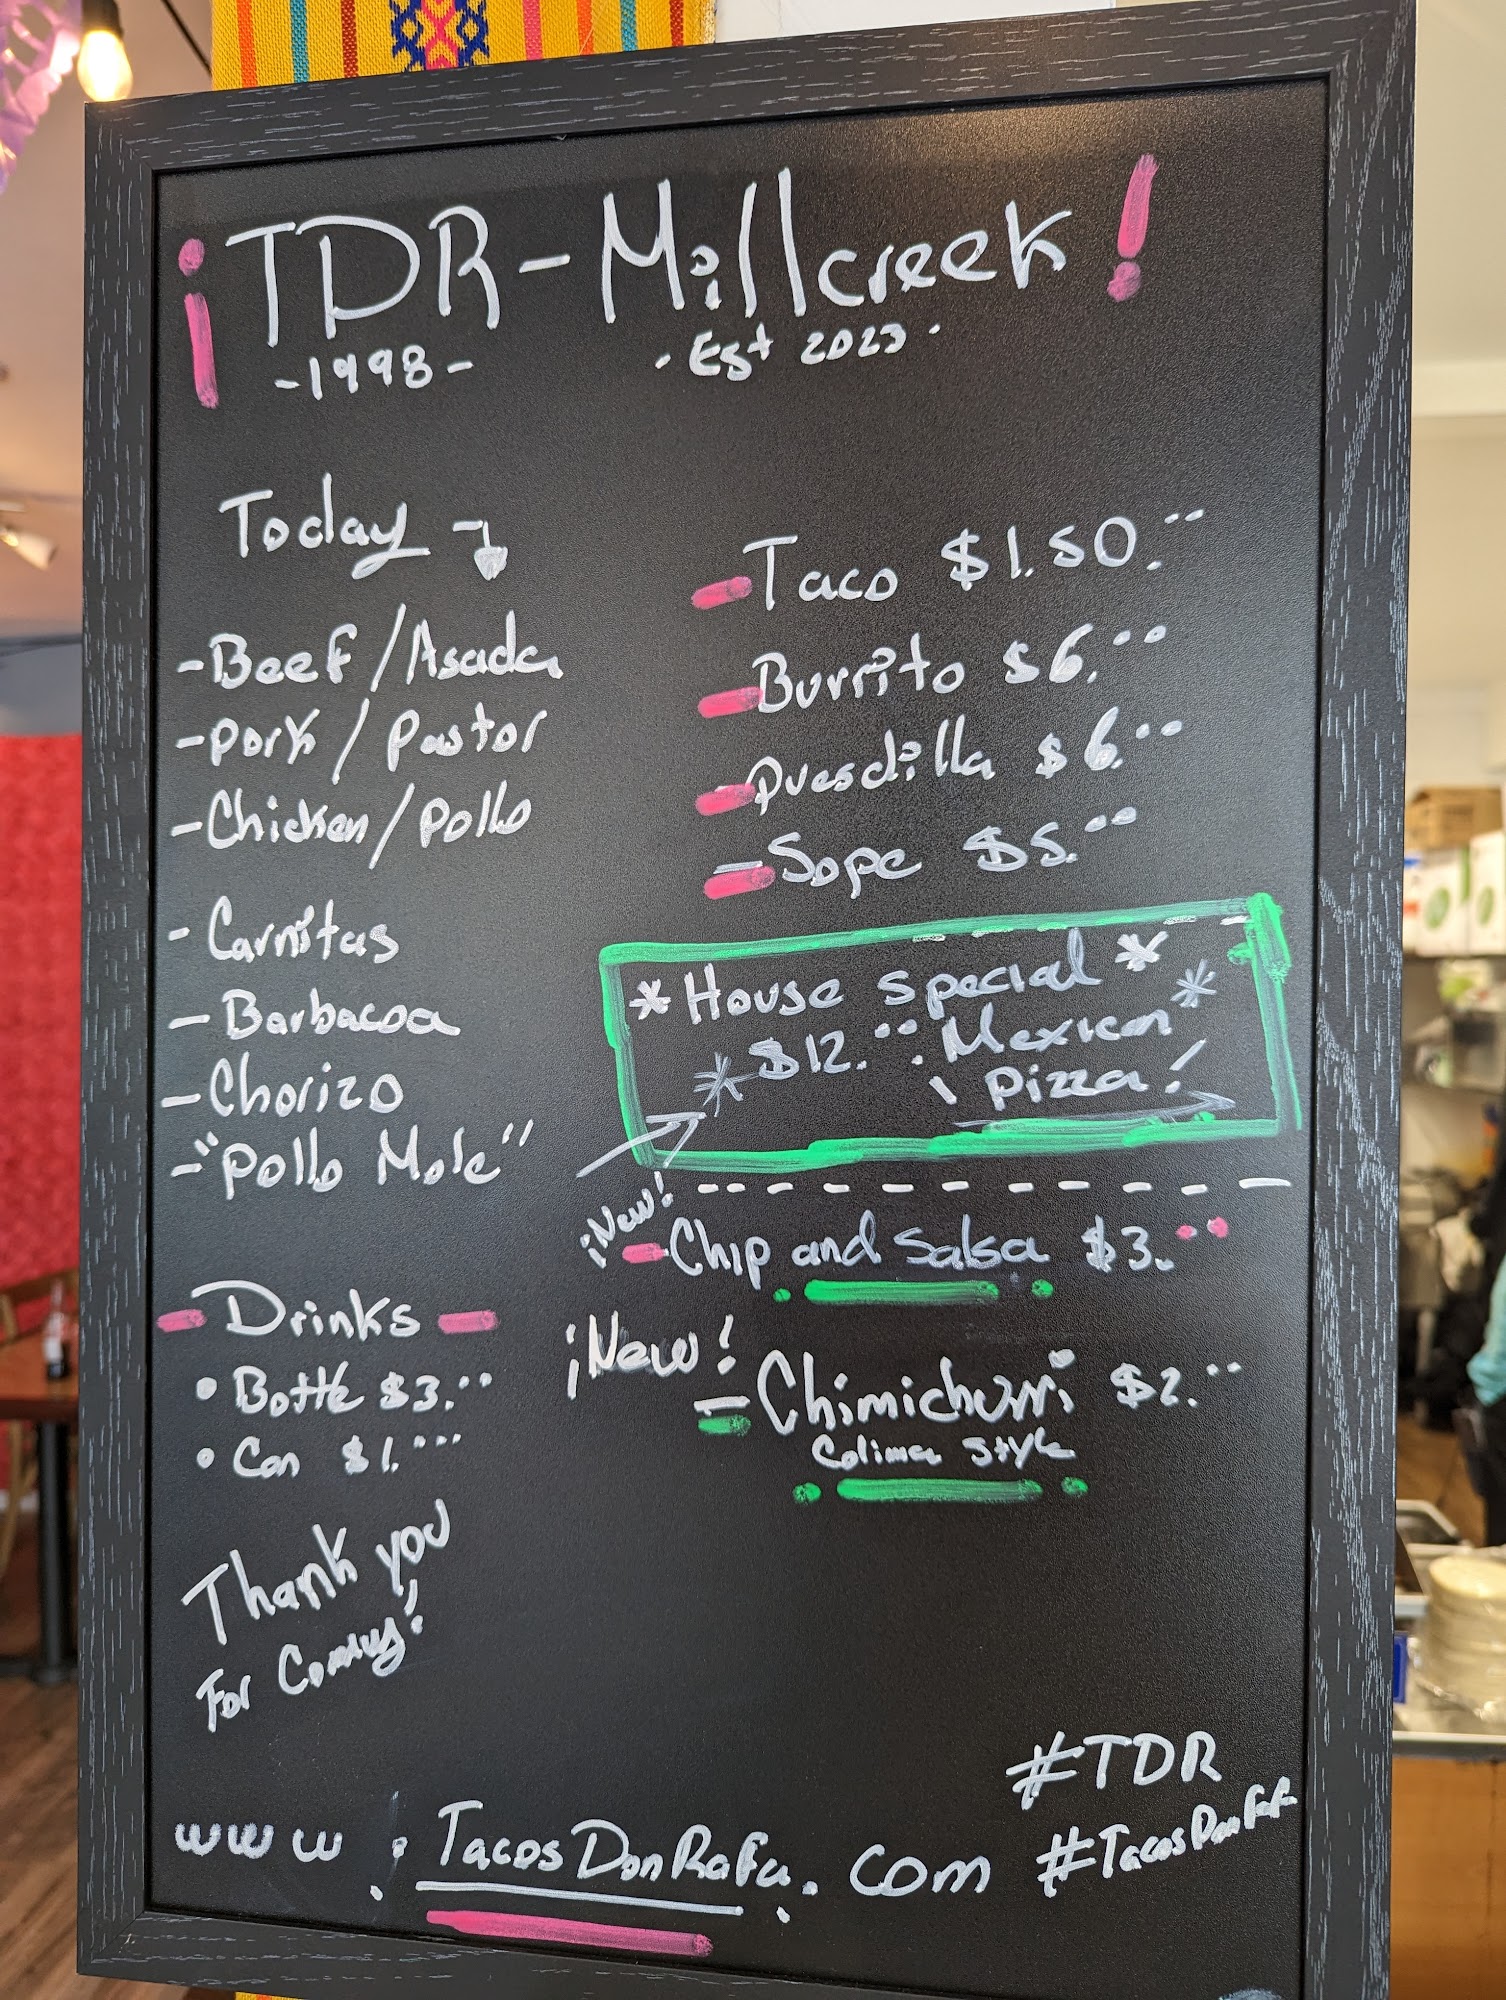 ¡TDR-Millcreek!
-1998-
· Est 2023 ·
Today
-Beef/Asada
-Pork / Pastor
-Chicken/Pollo
- Carnitas
- Barbacoa
- Chorizo
-"Pollo Mole"
-Taco $1.50.
-Burrito $6.
-Quesdilla $6.
-Sope $5.
*House Special*
*$12. Mexican*
Pizza!
¡New!
-Chip and Salsa $3.
¡New!
-Chimichurri $2.
Colima Style
-Drinks-
• Bottle $3.
• Can $1.
Thank you
For Coming!
#TDR
www.TacosDonRafa.com
#TacosDonRafa